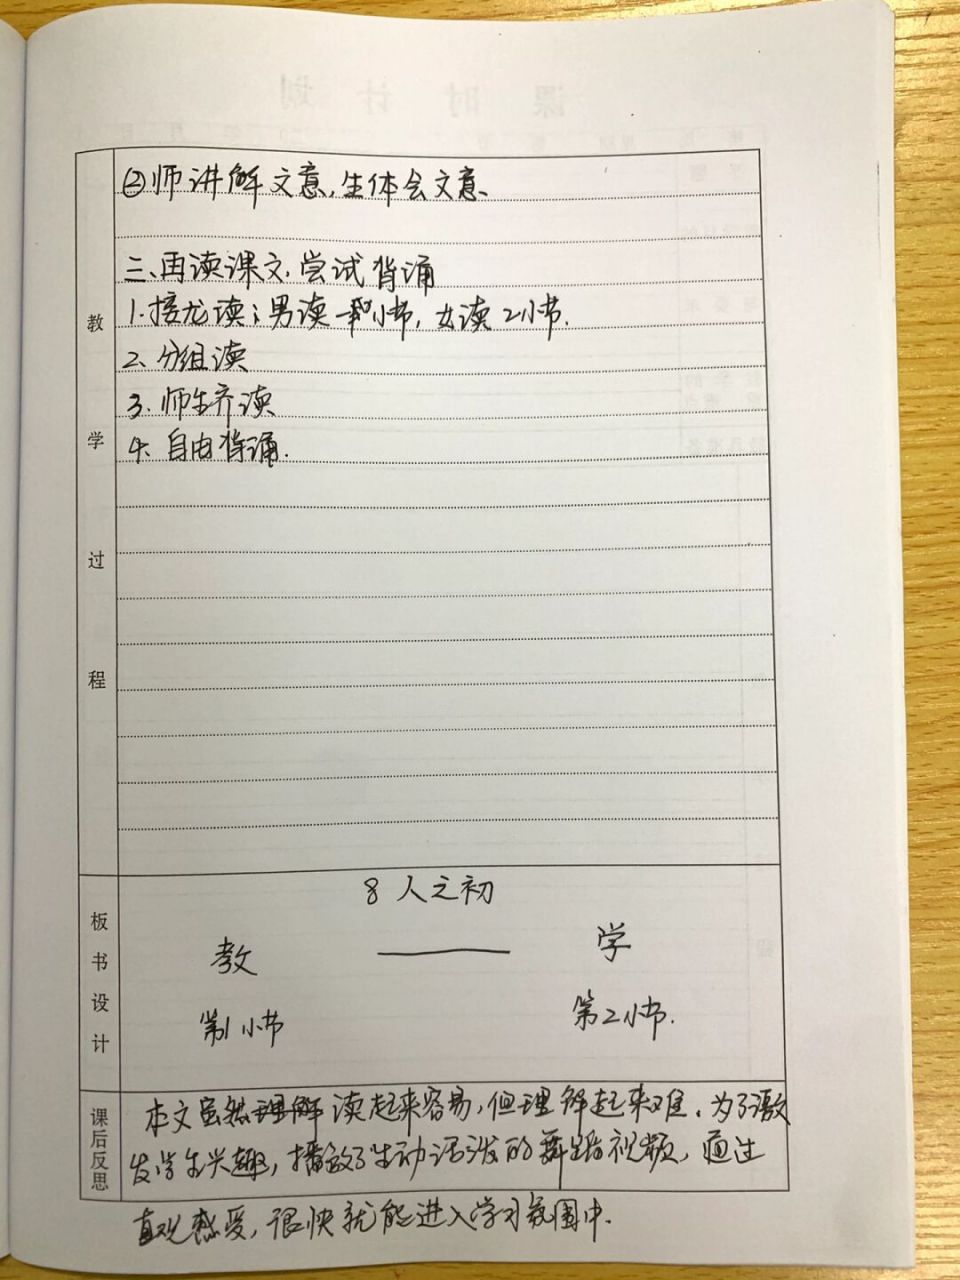 教学过程
②师讲解文意,生体会文意.
三、再读课文,尝试背诵
1.接龙读:男读一小节,女读2小节.
2、分组读
3.师生齐读
4.自由背诵.
板书设计
8 人之初
教 —— 学
第1小节 第2小节.
课后反思
本文虽然读起来容易,但理解起来难.为了激
发学生兴趣,播放了生动活泼的舞蹈视频,通过
直观感受,很快就能进入学习氛围中.